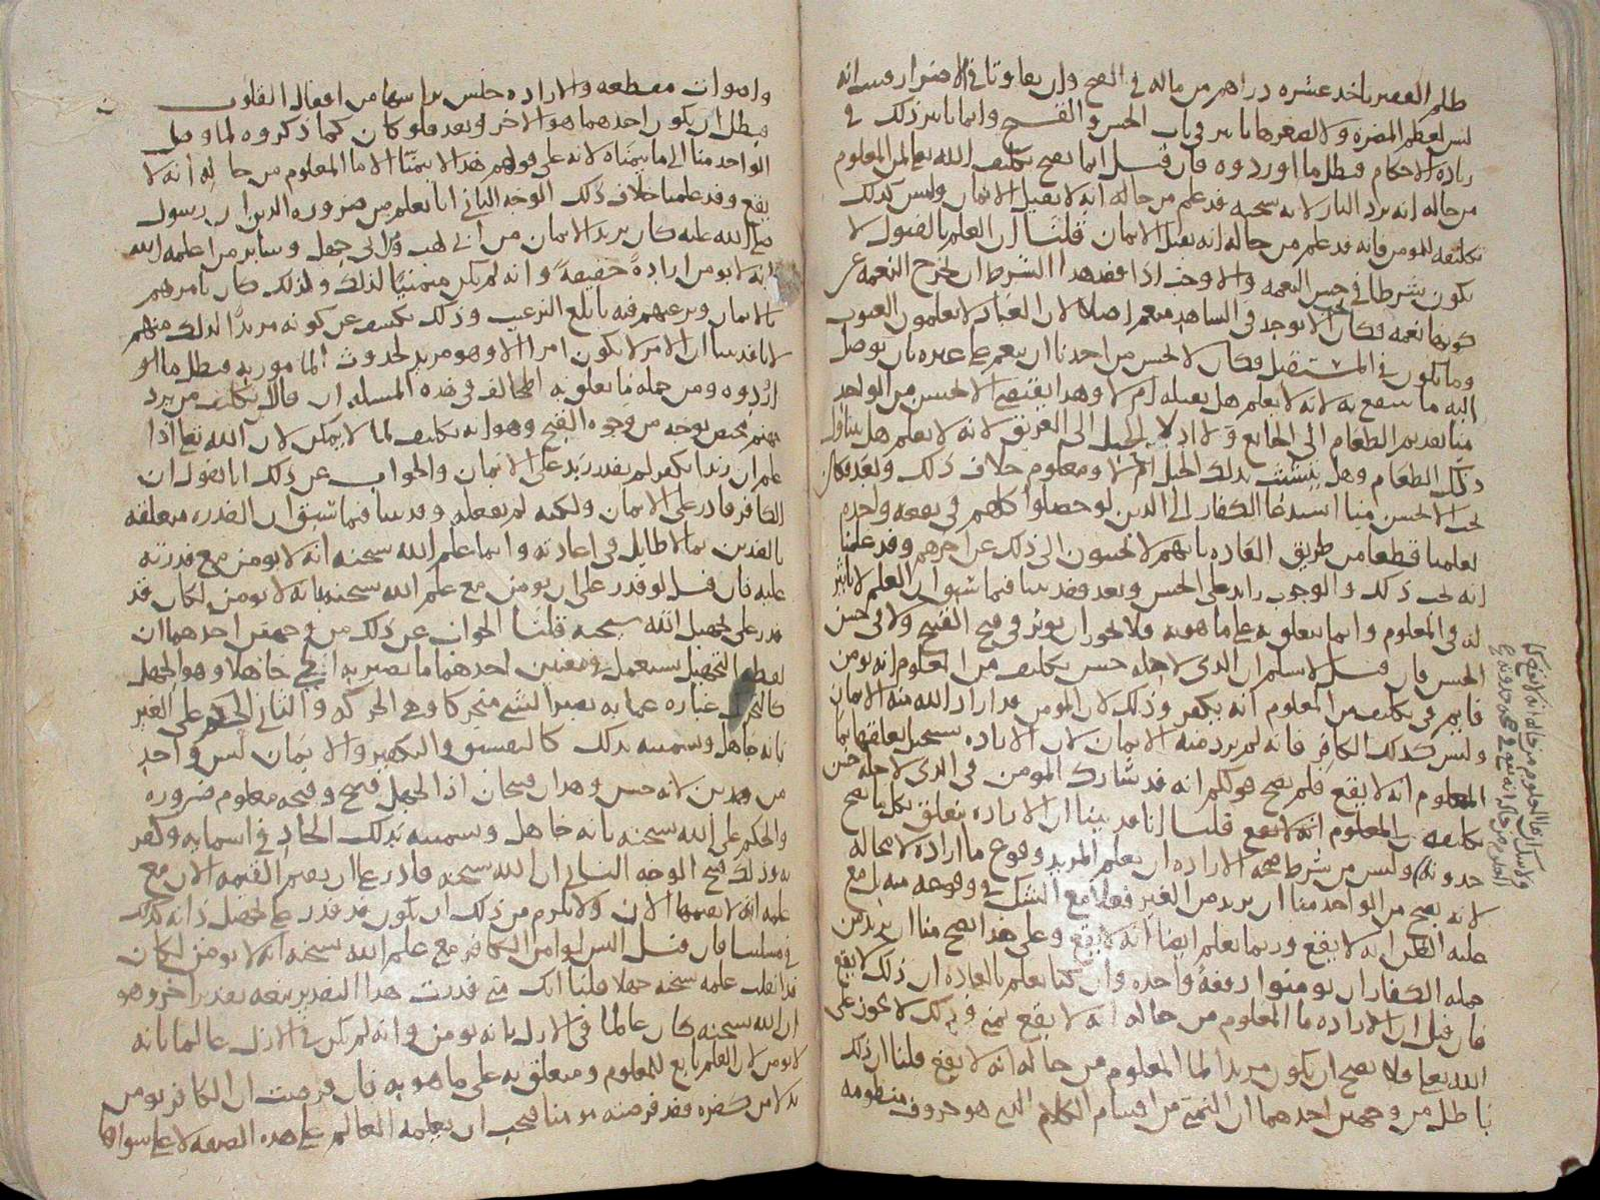 ظلم الفقير ياخذ عشره دراهم من ماله في القبح وان تفاوتا في الاضرار فبين انه
ليس لعظم المضرة ولا لصغرها تاثير في باب الحسن والقبح وانما تاثير ذلك في
زيادة الاحكام فبطل ما اوردوه فان قيل انما يصح تكليف الله تعالى من المعلوم
من حاله انه يرد النار لانه سبحنه قد علم من حاله انه لا يقبل الايمان وليس كذلك
تكليفه للمومن فانه قد علم من حاله انه يقبل الايمان قلنا ان العلم بالقبول لا
يكون شرطا في حسن النعمه والا وجب اذا فقد هذا الشرط ان تخرج النعمه عن
كونها نعمه فكان لا يوجد في الشاهد منعم اصلا لان العباد لا يعلمون الغيوب
وما يكون في المستقبل فكان لا يحسن من احدنا ان ينعم على غيره بان يوصل
اليه ما ينتفع به لانه لا يعلم هل يقبله ام لا وهذا يقتضي الا يحسن من الواحد
منا تقديم الطعام الى الجائع ولا ادلا الحبل الى الغريق لانه لا يعلم هل يتناول
ذلك الطعام وهل يتشبث بذلك الحبل ام لا ومعلوم خلاف ذلك وبعد فكان
يجب الا يحسن منا استدعا الكفار الى الدين لو حصلوا كلهم في بقعه واحده
لعلمنا قطعا من طريق العاده بانهم لا يجيبون الى ذلك عن اخرهم وقد علمنا
انه يجب ذلك والوجوب زايد على الحسن وبعد فقد بينا فيما سبق ان العلم لا تاثير
له في المعلوم وانما يتعلق به على ما هو به فلا يجوز ان يوثر في قبح القبيح ولا في حسن
الحسن فان قيل لا نسلم ان الذي لاجله حسن تكليف من المعلوم انه يومن
قايم في تكليف من المعلوم انه يكفر وذلك لان المومن قد اراد الله منه الايمان
وليس كذلك الكافر فانه لم يرد منه الايمان لان الاراده يستحيل تعلقها بما
المعلوم انه لا يقع فلم يصح قولكم انه قد شارك المومن في الذي لاجله حسن
تكليفه المعلوم انه لا يقع قلنا انا قد بينا ان الاراده تتعلق بكل ما يصح
حدوثه وليس من شرط صحه الاراده ان يعلم المريد وقوع ما اراده لا محاله
لانه يصح من الواحد منا ان يريد من الغير فعلا مع الشك في وقوعه منه بل مع
غلبه الظن انه لا يقع وربما نعلم ايضا انه لا يقع وعلى هذا يصح منا ان نريد من
جمله الكفار ان يومنوا دفعة واحده وان كنا نعلم بالعاده ان ذلك لا يقع
فان قيل ان الاراده ما المعلوم من حاله انه لا يقع تمني وذلك لا يجوز على
الله تعالى فلا يصح ان يكون مريدا لما المعلوم من حاله انه لا يقع قلنا ان ذلك
باطل من وجهين احدهما ان التمني من اقسام الكلام الذي هو حروف منظومه
واصوات مقطعه والاراده جنس براسها من افعال القلوب
فبطل ان يكون احدهما هو الاخر وبعد فلو كان كما ذكروه لما وصل
الواحد منا الى ما يتمناه لانه على قولهم هذا لا يتمنا الا ما المعلوم من حاله انه لا
يقع وقد علمنا خلاف ذلك الوجه الثاني انا نعلم من ضروره الدين ان رسول
صلى الله عليه كان يريد الايمان من ابي لهب وابي جهل وساير من اعلمه الله
انه لا يومن ارادة حقيقة وانه لم يكن متمنيا لذلك ولذلك كان يامرهم
بالايمان ويرغبهم فيه بابلغ الترغيب وذلك يكشف عن كونه مريدا لذلك منهم
لانا قد بينا ان الامر لا يكون امرا الا وهو مريد لحدوث المامور به فبطل ما او
اردوه ومن جمله ما يتعلق به المخالف في هذه المسله ان قال تكليف من يرد
جهنم مختص بوجه من وجوه القبح وهو انه تكليف لما لا يمكن لان الله تعا اذا
علم ان زيدا يكفر لم يقدر زيد على الايمان والجواب عن ذلك انا نقول ان
الكافر قادر على الايمان ولكنه لم يفعله وقد بينا فيما سبق ان القدره متعلقه
بالضدين بما لا طايل في اعادته وانما علم الله سبحنه انه لا يومن مع قدرته
عليه فان قيل لو قدر على ان يومن مع علم الله سبحنه بانه لا يومن لكان قد
قدر على تجهيل الله سبحنه قلنا الجواب عن ذلك من وجهين احدهما ان
لفظ التجهيل يستعمل في معنيين احدهما ما يصير به الحي جاهلا وهو الجهل
كالتحريك عباره عما به يصير الشي متحركا وهي الحركه والثاني الحكم على الغير
بانه جاهل وتسميته بذلك كالتفسيق والتكفير والايمان ليس واحد
من هذين لانه حسن وهذان قبيحان اذ الجهل قبيح وقبحه معلوم ضروره
والحكم على الله سبحنه بانه جاهل وتسميته بذلك الحاد في اسمايه وكفر
به وذلك قبيح الوجه الثاني ان الله سبحنه قادر على ان يقيم القيمه الان مع
علمه انه لا يقيمها الان ولا يلزم من ذلك ان يكون قد قدر على تجهيل ذاته كذلك
في مسلتنا فان قيل اليس لو امن الكافر مع علم الله سبحنه انه لا يومن لكان
قد انقلب علمه سبحنه جهلا قلنا انك متى قدرت هذا التقدير يتبعه تقدير اخر وهو
ان الله سبحنه كان عالما في الازل بانه يومن وانه لم يكن في الازل عالما بانه
لا يومن لان العلم تابع للمعلوم ومتعلق به على ما هو به فان فرضت ان الكافر يومن
بدلا من كفره فقد فرضته مومنا فيجب ان يعلمه العالم على هذه الصفه لا على سواها